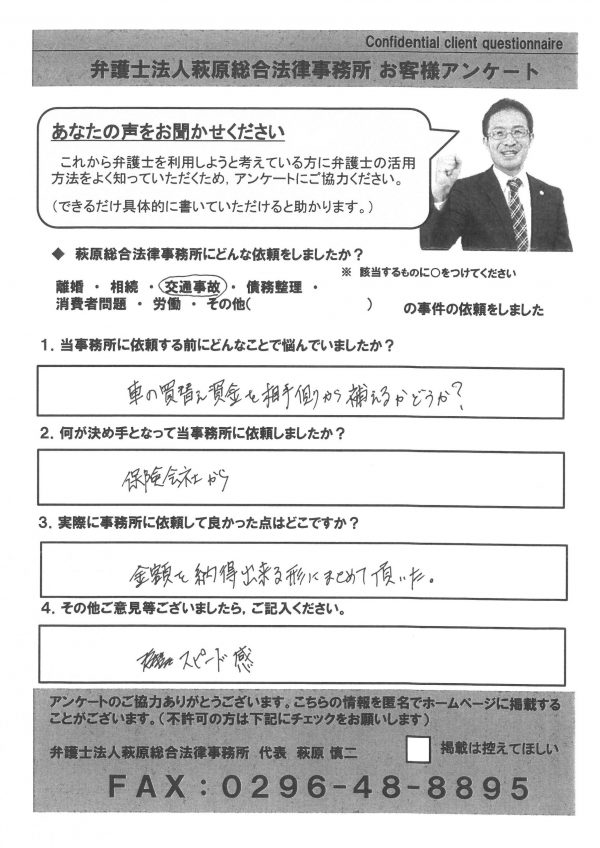 Confidential client questionnaire
弁護士法人萩原総合法律事務所 お客様アンケート
あなたの声をお聞かせください
これから弁護士を利用しようと考えている方に弁護士の活用
方法をよく知っていただくため，アンケートにご協力ください。
（できるだけ具体的に書いていただけると助かります。）
◆ 萩原総合法律事務所にどんな依頼をしましたか？
※ 該当するものに○をつけてください
離婚 ・ 相続 ・ 交通事故 ・ 債務整理 ・
消費者問題 ・ 労働 ・ その他( ) の事件の依頼をしました
１．当事務所に依頼する前にどんなことで悩んでいましたか？
車の買替え資金を相手側から補えるかどうか？
２．何が決め手となって当事務所に依頼しましたか？
保険会社から
３．実際に事務所に依頼して良かった点はどこですか？
金額を納得出来る形にまとめて頂いた。
４．その他ご意見等ございましたら，ご記入ください。
スピード感
アンケートのご協力ありがとうございます。こちらの情報を匿名でホームページに掲載する
ことがございます。（不許可の方は下記にチェックをお願いします）
弁護士法人萩原総合法律事務所 代表 萩原 慎二
掲載は控えてほしい
FAX：0296-48-8895